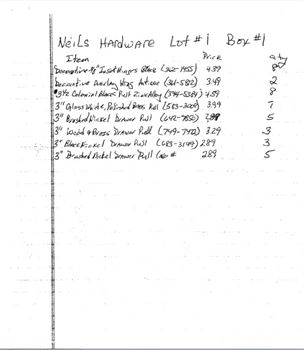 Neils Hardware Lot #1 Box #1
Item Price qty
Decorative 3/8" Inset Hinges Black (362-1955) 4.39
Decorative Overlay Hing Antique (361-5812) 3.49 2
3 1/2 Colonial Brass Pull (544-5384) 4.59 8
3" Gloss White, Polished Brass Pull (583-300) 3.99 7
3" Brushed Nickel Drawer Pull (642-7850) 5
3" Wood & Brass Drawer Pull (749-7912) 3.29 3
3" Black Nickel Drawer Pull (683-3149) 2.89 3
3" Brushed Nickel Drawer Pull (no # 2.89 5